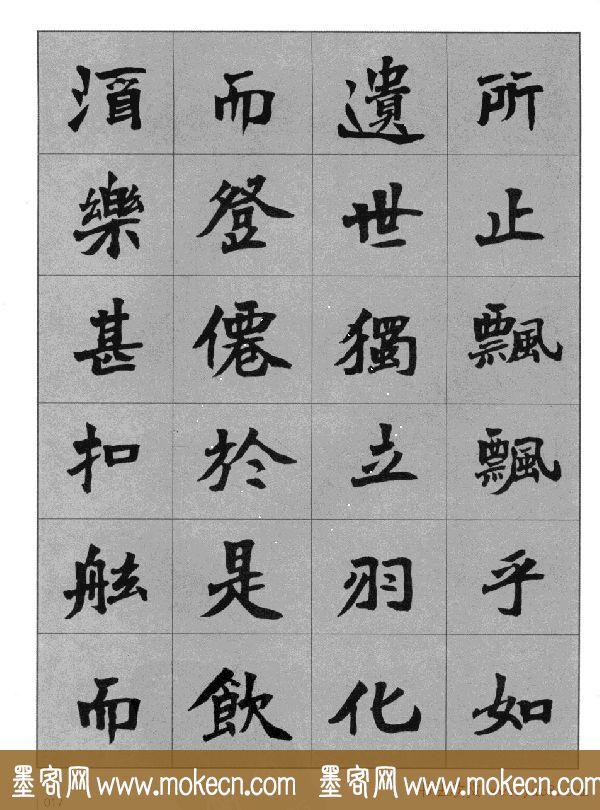 所止飄飄乎如
遺世獨立羽化
而登僊於是飲
酒樂甚扣舷而
墨客网 www.mokecn.com 墨客网 www.mokecn.com
017